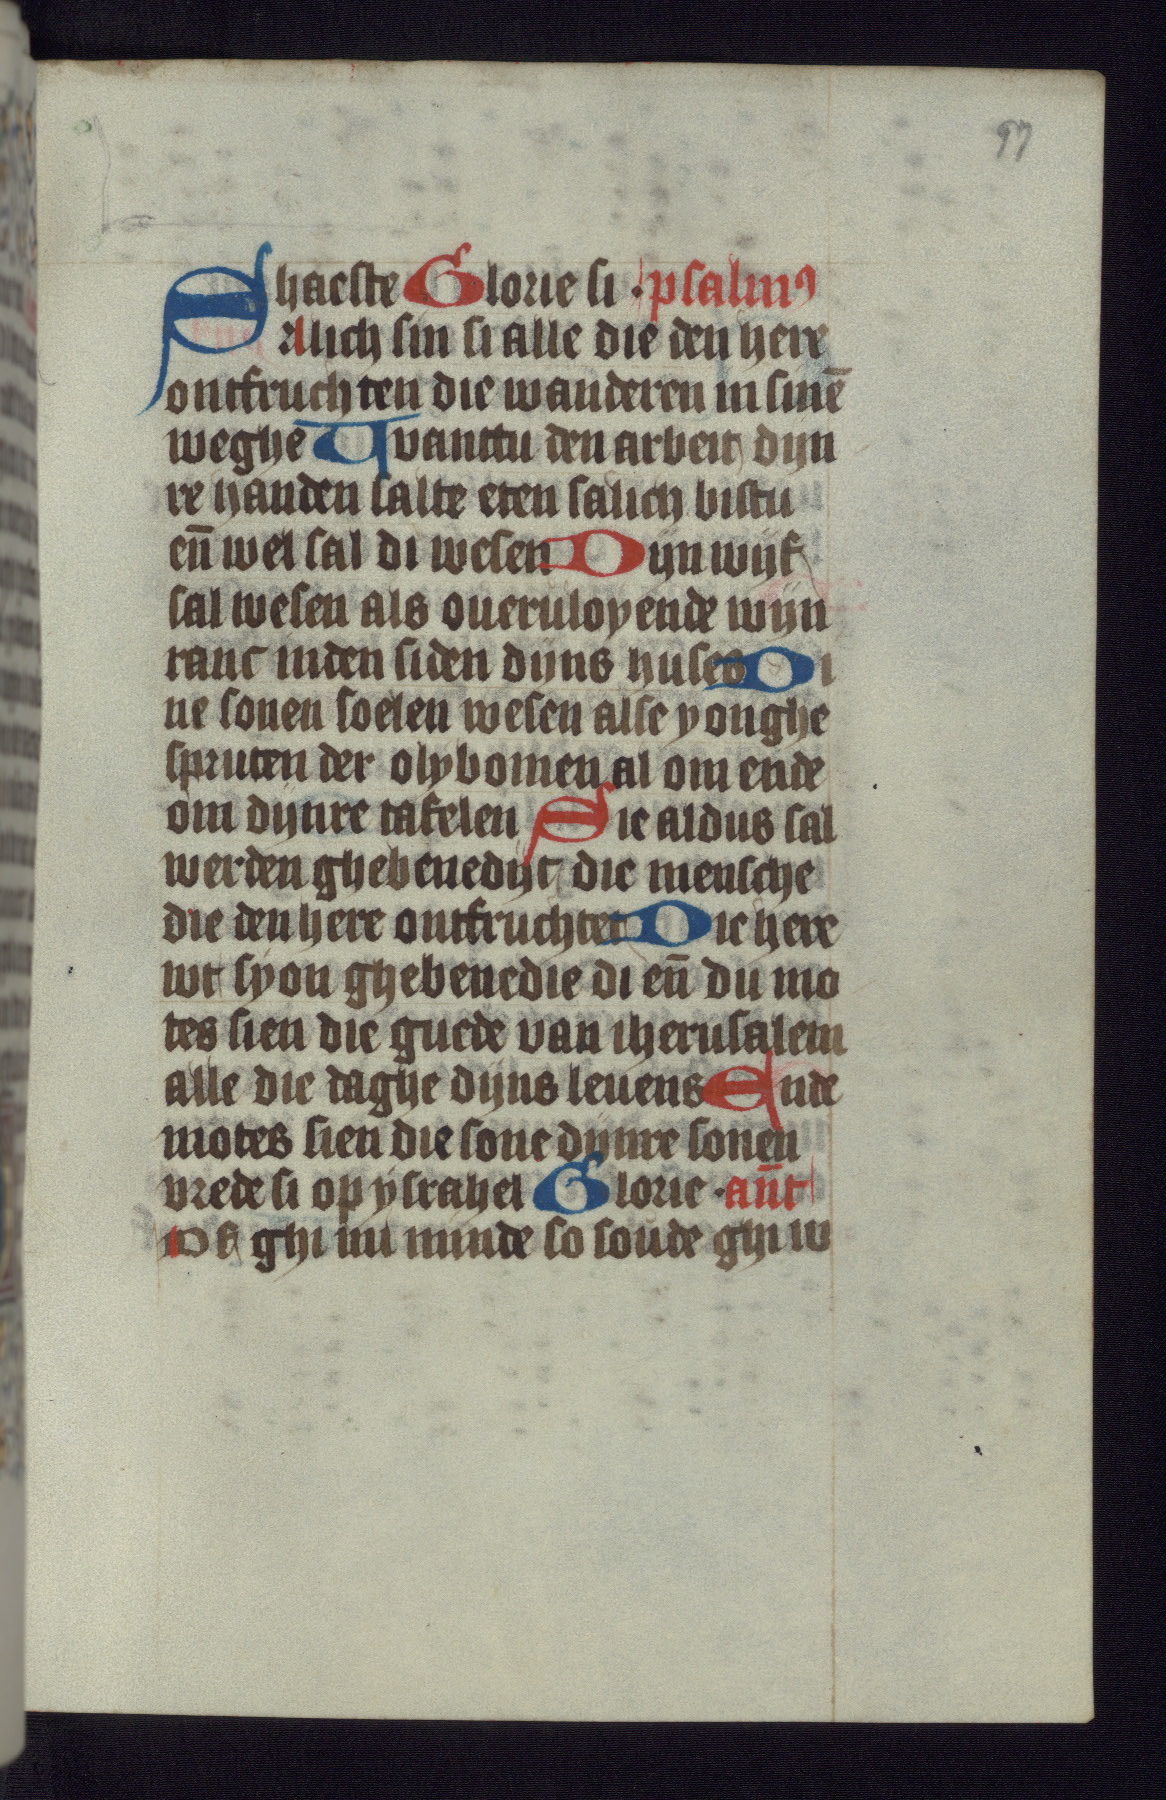 57
haeste Glorie si · psalmꝰ
Salich sin si alle die den here
ontfruchten die wanderen in sinē
weghe Wanttu den arbeit dyn
re handen salte eten salich bistu
eñ wel sal di wesen Dijn wijf
sal wesen als oueruloyende wijn
ranc inden siden dijns huses Di
ne sonen soelen wesen alse yonghe
spruten der olybomen al om ende
om dijnre tafelen Sie aldus sal
werden ghebenedijt die mensche
die den here ontfruchtet Die here
wt syon ghebenedie di eñ du mo
tes sien die guede van iherusalem
alle die daghe dijns leuens Ende
motes sien die sone dijnre sonen
vrede si op ysrahel Glorie · añt
Of ghi mi minde so soude ghi w